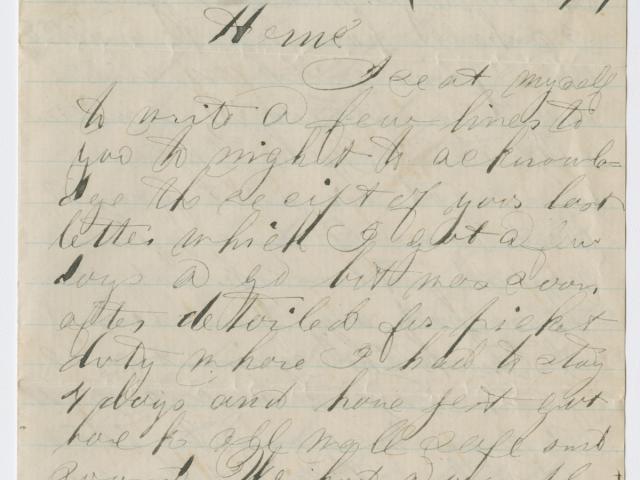 Home
I seat myself
to write a few lines to
you to night to acknowle=
dge the receipt of your last
letter which I got a few
days a go but was soon
after detailed for picket
duty where I had to stay
4 days and have jest got
back all well safe and
sound We had a